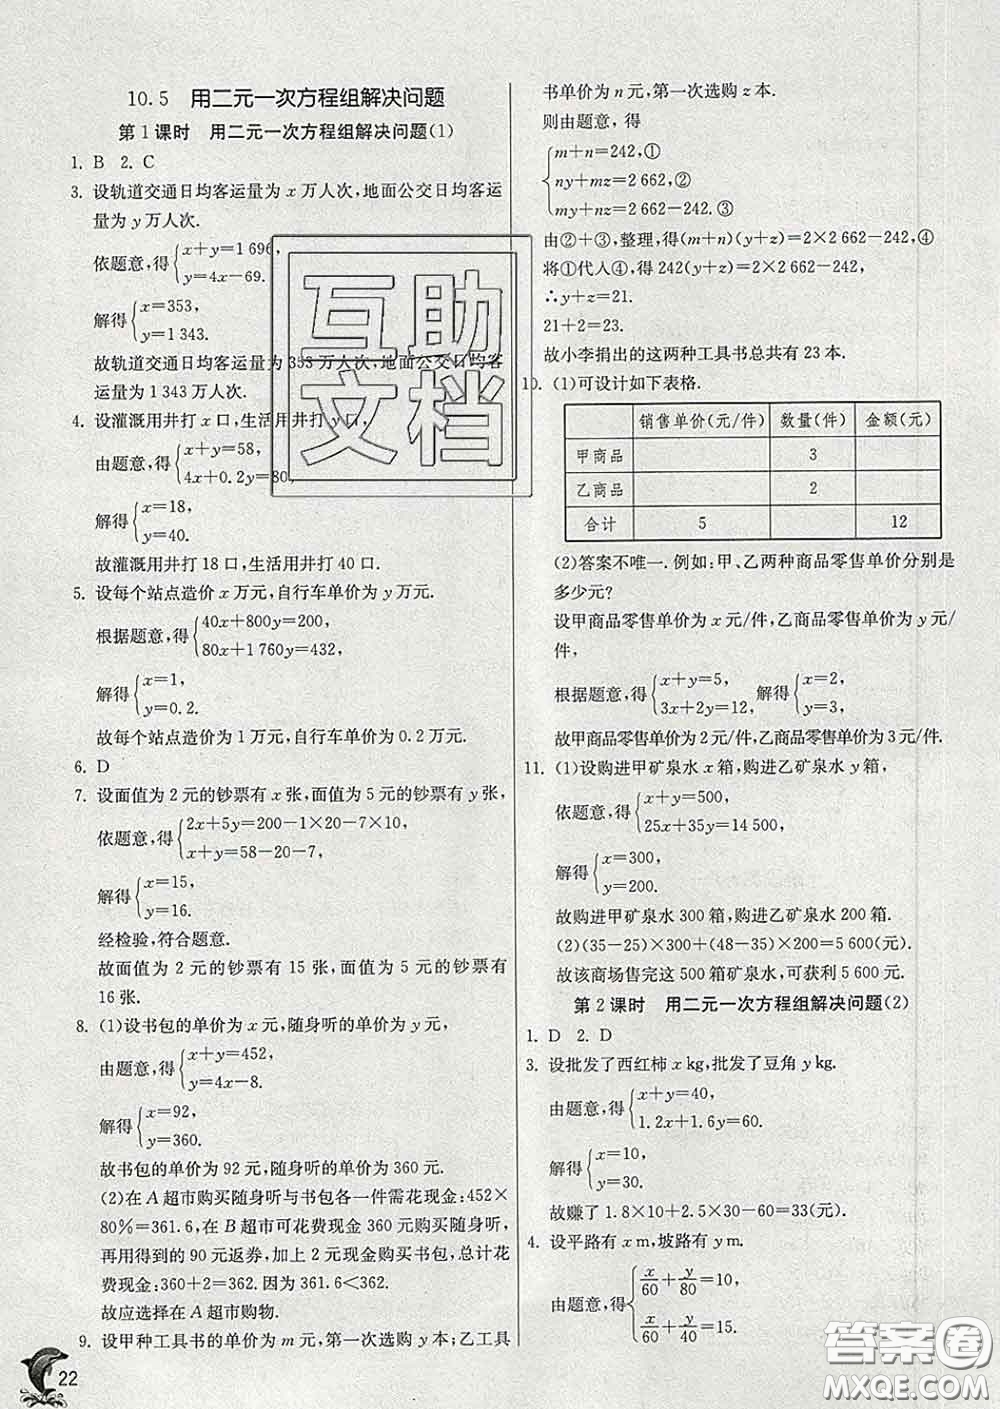 10.5 用二元一次方程组解决问题
第1课时 用二元一次方程组解决问题(1)
1. B 2. C
3. 设轨道交通日均客运量为 x 万人次,地面公交日均客运
量为 y 万人次.
依题意,得{x+y=1 696,
y=4x-69.
解得{x=353,
y=1 343.
故轨道交通日均客运量为 353 万人次,地面公交日均客
运量为 1 343 万人次.
4. 设灌溉用井打 x 口,生活用井打 y 口,
由题意,得{x+y=58,
4x+0.2y=80,
解得{x=18,
y=40.
故灌溉用井打 18 口,生活用井打 40 口.
5. 设每个站点造价 x 万元,自行车单价为 y 万元.
根据题意,得{40x+800y=200,
80x+1 760y=432,
解得{x=1,
y=0.2.
故每个站点造价为 1 万元,自行车单价为 0.2 万元.
6. D
7. 设面值为 2 元的钞票有 x 张,面值为 5 元的钞票有 y 张,
依题意,得{2x+5y=200-1×20-7×10,
x+y=58-20-7,
解得{x=15,
y=16.
经检验,符合题意.
故面值为 2 元的钞票有 15 张,面值为 5 元的钞票有
16 张.
8. (1)设书包的单价为 x 元,随身听的单价为 y 元,
由题意,得{x+y=452,
y=4x-8.
解得{x=92,
y=360.
故书包的单价为 92 元,随身听的单价为 360 元.
(2)在 A 超市购买随身听与书包各一件需花现金:452×
80%=361.6,在 B 超市可花费现金 360 元购买随身听,
再用得到的 90 元返券,加上 2 元现金购买书包,总计花
费现金:360+2=362.因为 361.6<362.
故应选择在 A 超市购物.
9. 设甲种工具书的单价为 m 元,第一次选购 y 本;乙工具
书单价为 n 元,第一次选购 z 本.
则由题意,得
{m+n=242,①
ny+mz=2 662,②
my+nz=2 662-242.③
由②+③,整理,得(m+n)(y+z)=2×2 662-242,④
将①代人④,得 242(y+z)=2×2 662-242,
∴y+z=21.
21+2=23.
故小李捐出的这两种工具书总共有 23 本.
10. (1)可设计如下表格.
销售单价(元/件) 数量(件) 金额(元)
甲商品 3
乙商品 2
合计 5 12
(2)答案不唯一.例如:甲、乙两种商品零售单价分别是
多少元?
设甲商品零售单价为 x 元/件,乙商品零售单价为 y 元/
件,
根据题意,得{x+y=5,
3x+2y=12, 解得{x=2,
y=3.
故甲商品零售单价为 2 元/件,乙商品零售单价为 3 元/件.
11. (1)设购进甲矿泉水 x 箱,购进乙矿泉水 y 箱,
依题意,得{x+y=500,
25x+35y=14 500,
解得{x=300,
y=200.
故购进甲矿泉水 300 箱,购进乙矿泉水 200 箱.
(2)(35-25)×300+(48-35)×200=5 600(元).
故该商场售完这 500 箱矿泉水,可获利 5 600 元.
第2课时 用二元一次方程组解决问题(2)
1. D 2. D
3. 设批发了西红柿 x kg,批发了豆角 y kg.
由题意,得{x+y=40,
1.2x+1.6y=60,
解得{x=10,
y=30.
故赚了 1.8×10+2.5×30-60=33(元).
4. 设平路有 x m,坡路有 y m.
由题意,得{x/60+y/80=10,
x/60+y/40=15.
22
互助
文档
答案圈
MXQE.COM